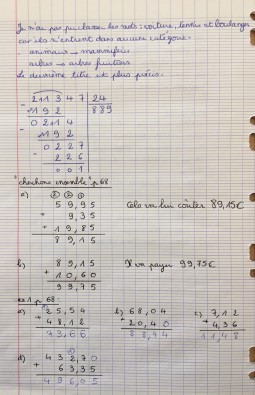 Je n'ai pas pu classer les mots : voiture, tennis et boulanger
car ils n'entrent dans aucune catégorie.
animaux → mammifères
arbres → arbres fruitiers
Le deuxième titre est plus précis.
- 21347 | 24
192 | 889
0214
- 192
0227
- 226
001
"cherchons ensemble" p 68
a) ② ② ①
59,95
+ 9,35
+ 19,85
89,15
Cela va lui coûter 89,15€
b) 89,15
+ 10,60
99,75
Il va payer 99,75€
ex 1 p. 68 :
a) 25,54
+ 48,12
73,66
b) 68,04
+ 20,40
88,44
c) 7,12
+ 4,36
11,48
d) 432,70
+ 63,35
496,05